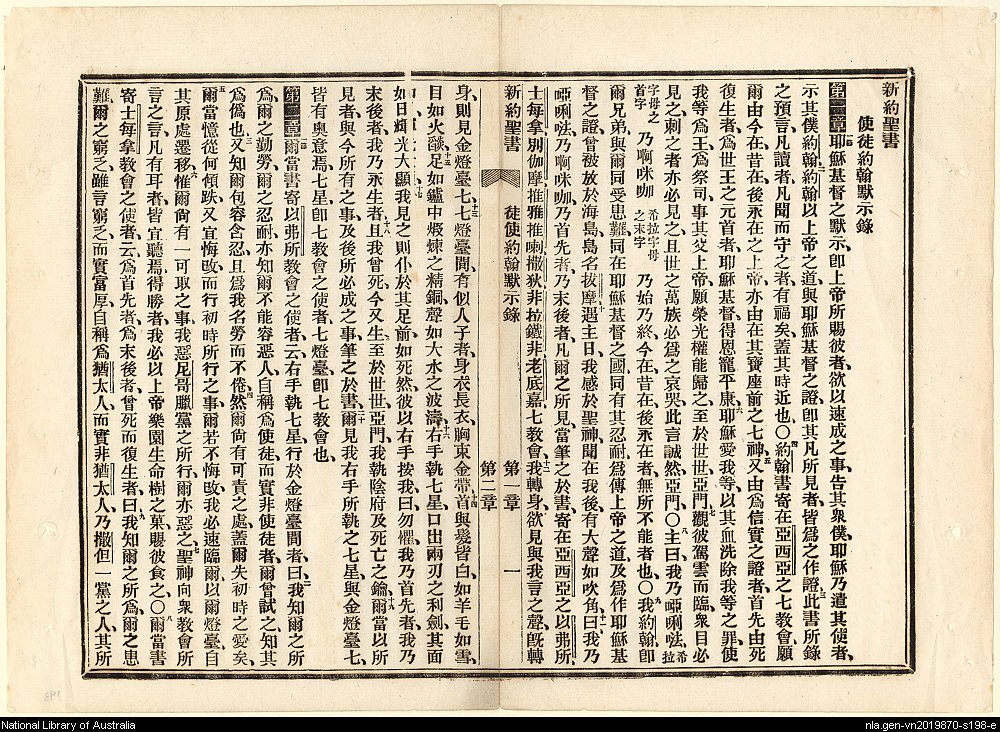 新約聖書
使徒約翰默示錄
第一章耶穌基督之默示、卽上帝所賜彼者、欲以速成之事、告其衆僕、耶穌乃遣其使者、
示其僕約翰、約翰以上帝之道、與耶穌基督之證、卽其凡所見者、皆爲之作證、此書所錄
之預言、凡讀者、凡聞而守之者、有福矣、蓋其時近也、〇約翰書寄在亞西亞之七教會、願
爾由今在昔在後永在之上帝、亦由在其寶座前之七神、又由爲信實之證者、首先由死
復生者、爲世王之元首者、耶穌基督、得恩寵平康、耶穌愛我等、以其血洗除我等之罪、使
我等爲王爲祭司、事其父上帝、願榮光權能歸之、至於世世、亞門、觀彼駕雲而臨、衆目必
見之、刺之者亦必見之、且世之萬族、必爲之哀哭、此言誠然、亞門、〇主曰、我乃啞唎咗、希拉
字母之首字 乃啊咪咖 希拉字母之末字 乃始乃終、今在昔在後永在者、無所不能者也、〇我約翰、卽
爾兄弟、與爾同受患難、同在耶穌基督之國、同有其忍耐、爲傳上帝之道、及爲作耶穌基
督之證、曾被放於海島、島名拔摩、遇主日、我感於聖神、聞在我後有大聲如吹角、曰、我乃
啞唎咗、乃啊咪咖、乃首先者、乃末後者、凡爾之所見、當筆之於書、寄在亞西亞之以弗所、
士每拿、別伽摩、推雅推喇、撒狄、非拉鐵非、老底嘉、七教會、我轉身、欲見與我言之聲、旣轉
新約聖書 徒使約翰默示錄 第一章 一
第二章
身、則見金燈臺七、七燈臺間、有似人子者、身衣長衣、胸束金帶、首與髮皆白、如羊毛如雪、
目如火燄、足如鑪中煅煉之精銅、聲如大水之波濤、右手執七星、口出兩刃之利劍、其面
如日輝光大顯、我見之、則仆於其足前如死然、彼以右手按我曰、勿懼、我乃首先者、我乃
末後者、我乃永生者、且我曾死、今又生、至於世世、亞門、我執陰府及死亡之鑰、爾當以所
見者、與今所有之事、及後所必成之事、筆之於書、爾見我右手所執之七星、與金燈臺七、
皆有奧意焉、七星卽七教會之使者、七燈臺卽七教會也、
第二章爾當書寄以弗所教會之使者、云右手執七星、行於金燈臺間者曰、我知爾之所
爲、爾之勤勞、爾之忍耐、亦知爾不能容惡人、自稱爲使徒而實非使徒者、爾曾試之、知其
爲僞也、又知爾包容含忍、且爲我名勞而不倦、然爾尙有可責之處、蓋爾失初時之愛矣、
爾當憶從何傾跌、又宜悔改、而行初時所行之事、爾若不悔改、我必速臨爾、以爾燈臺、自
其原處遷移、惟爾尙有一可取之事、我惡尼哥臘黨之所行、爾亦惡之、聖神向衆教會所
言之言、凡有耳者、皆宜聽焉、得勝者、我必以上帝樂園生命樹之菓、賜彼食之、〇爾當書
寄士每拿教會之使者、云爲首先者、爲末後者、曾死而復生者曰、我知爾之所爲、爾之患
難、爾之窮乏、雖言窮乏、而實富厚、自稱爲猶太人、而實非猶太人、乃撒但一黨之人、其所